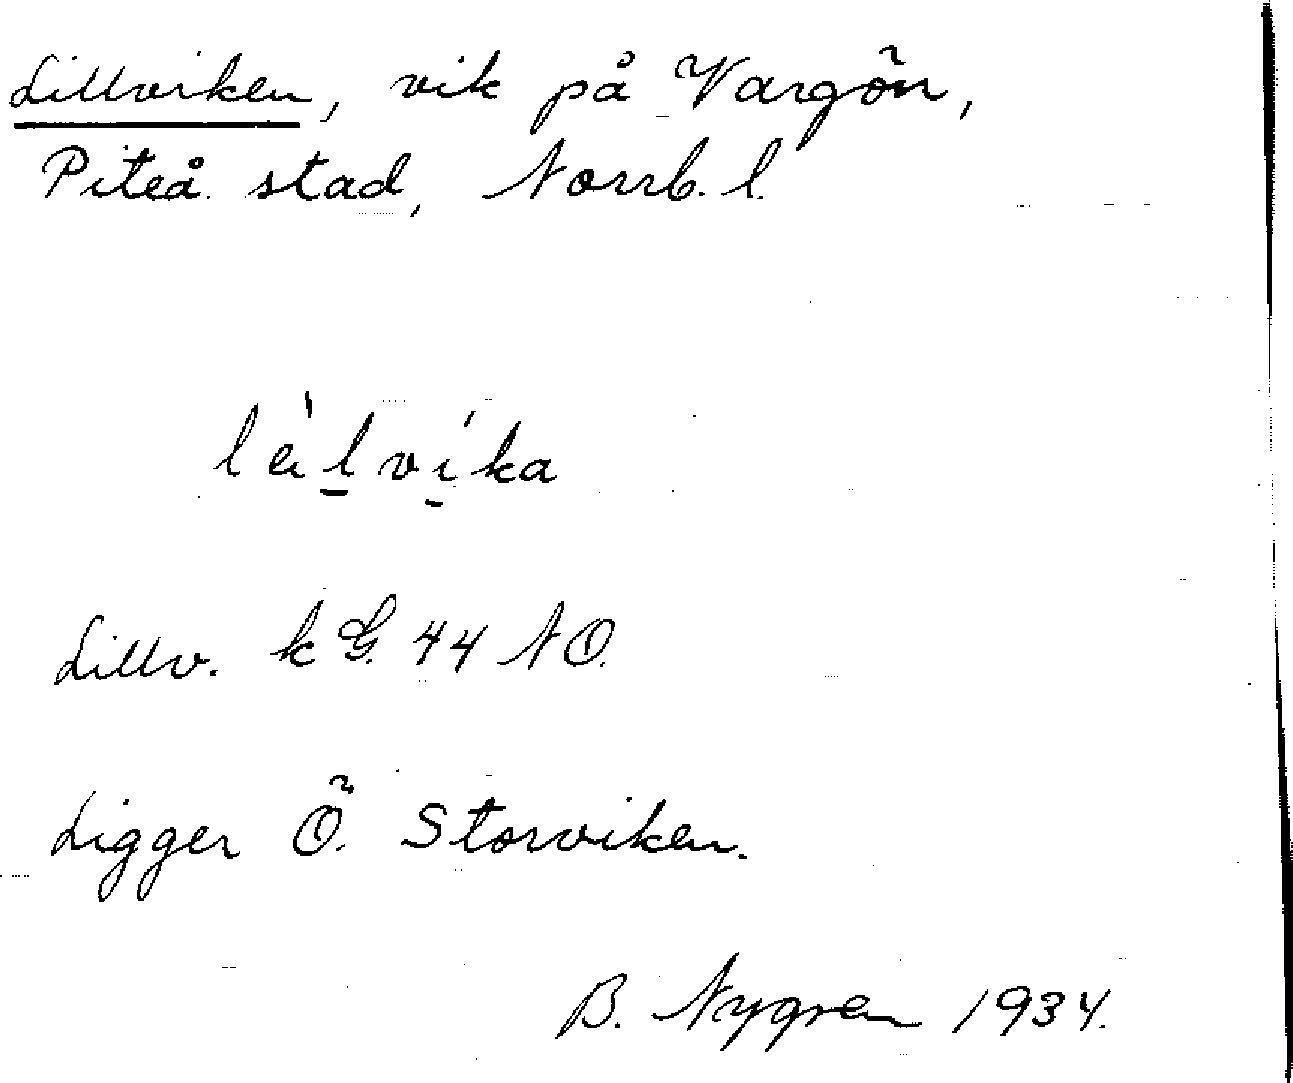 Lillviken, vik på Vargön,
Piteå stad, Norrb. l.
lèlvíka
Lillv. kG. 44 NO.
Ligger Ö. Storviken.
B. Nygren 1934.